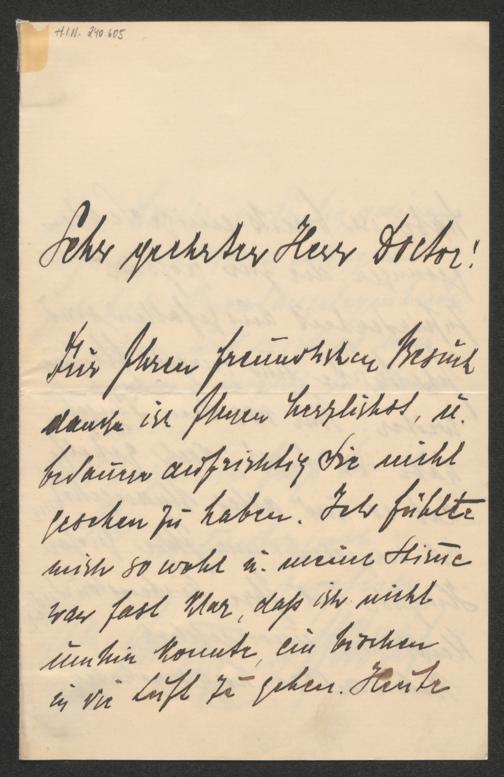 H.I.N. 240.605
Sehr geehrter Herr Doctor!
Für Ihren freundlichen Besuch
danke ich Ihnen herzlichst, u.
bedauere aufrichtig Sie nicht
gesehen zu haben. Ich fühlte
mich so wohl u. meine Stime
war fast klar, daß ich nicht
umhin konnte, ein bischen
in die Luft zu gehen. Heute